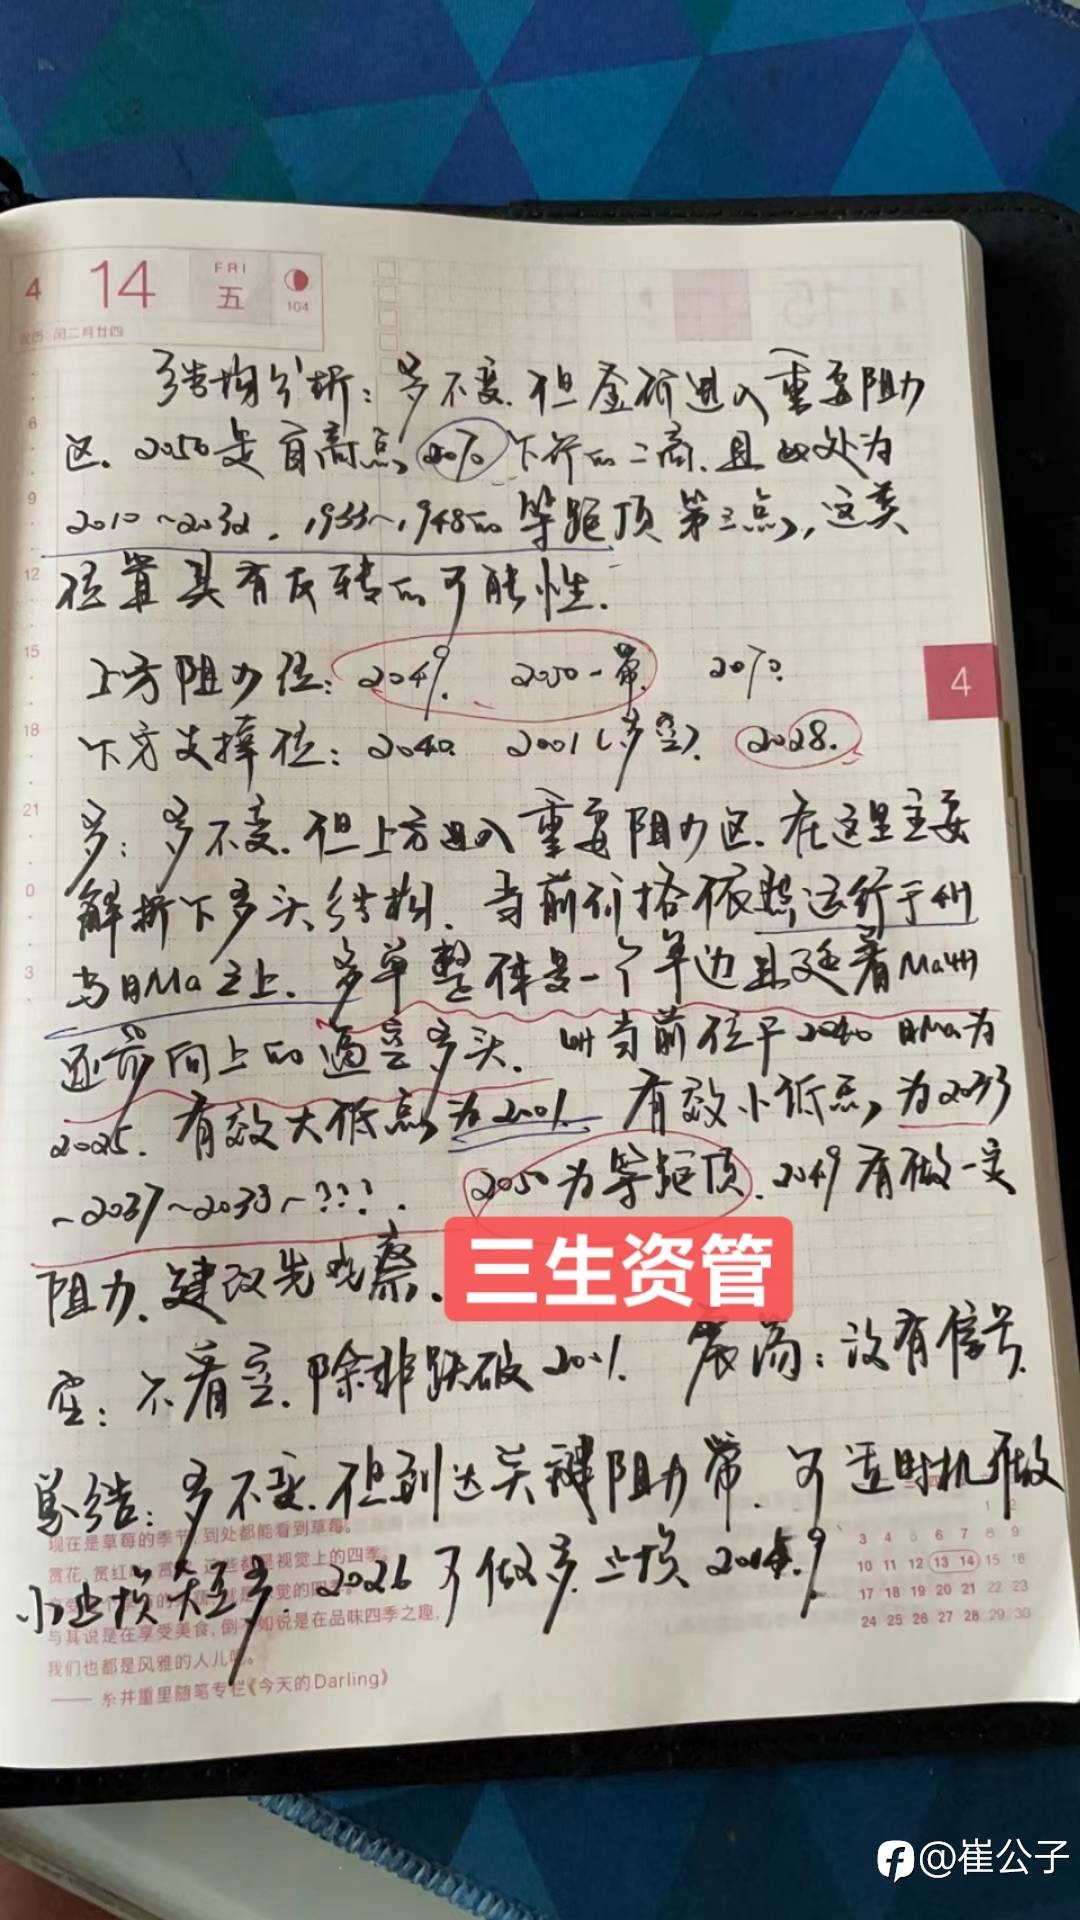 4 14 FRI 五 104
农历:闰二月廿四
结构分析：多不变.但金价进入重要阻力
区.2050是前高点2070下行的二高.且此处为
2010~2032.1933~1948的等距顶第三点,这类
位置具有反转的可能性.
上方阻力位：2049. 2050一带. 2070.
下方支撑位：2040. 2001(多空). 2028.
多：多不变.但上方进入重要阻力区.在这里主要
解析下多头结构.当前价格依然运行于4H
与日Ma之上.多单整体是一个单边且延着Ma4H
逐节向上的逼空多头.4H当前位于2040 日Ma为
2025.有效大低点为2001.有效小低点为2033
~2037~2033~???. 2050为等距顶.2049有做一实
阻力.建议先观察.
三生资管
空：不看空.除非跌破2001. 震荡：没有信号.
总结：多不变.但到达关键阻力带.可适时机做
小止损大空多.2026可做多.止损
6
9
12
15
18
21
0
3
4
现在是草莓的季节,到处都能看到草莓。
赏花、赏红叶、赏
与其说是在享受美食,倒不如说是在品味四季之趣,
我们也都是风雅的人儿呢。
—— 糸井重里随笔专栏《今天的Darling》
1 2
3 4 5 6 7 8 9
10 11 12 13 14 15 16
17 18 19 20 21 22 23
24 25 26 27 28 29 30
@崔公子